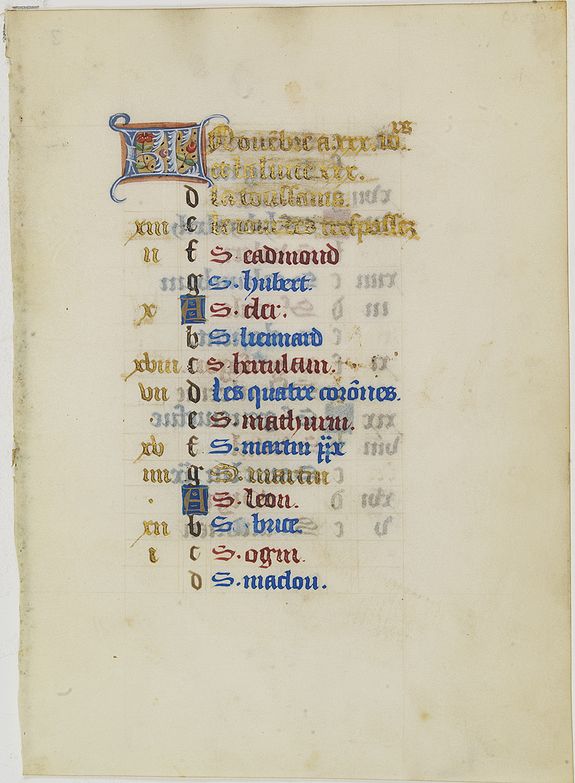 KL Nouēbre a xxx. io'rs
et la lune xxx.
d la toussains.
xiii e le iour des trespassez
ii f S. eadmond
g S. hubert.
x A S. cler.
b S. liennard
xviii c S. herulam.
vii d Les quatre corōnes.
e S. mathurin.
xv f S. martin ppe
iiii g S. martin
A S. leon.
xii b S. brice.
i c S. ogni.
d S. maclou.